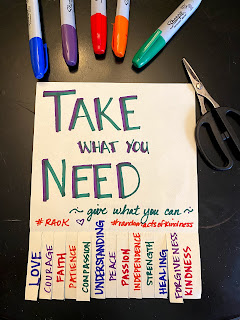 Sharpie
TAKE
WHAT YOU
NEED
~ give what you can ~
#RAOK
#randomactsofkindness
LOVE
COURAGE
FAITH
PATIENCE
COMPASSION
UNDERSTANDING
PEACE
PASSION
INDEPENDENCE
STRENGTH
HEALING
FORGIVENESS
KINDNESS